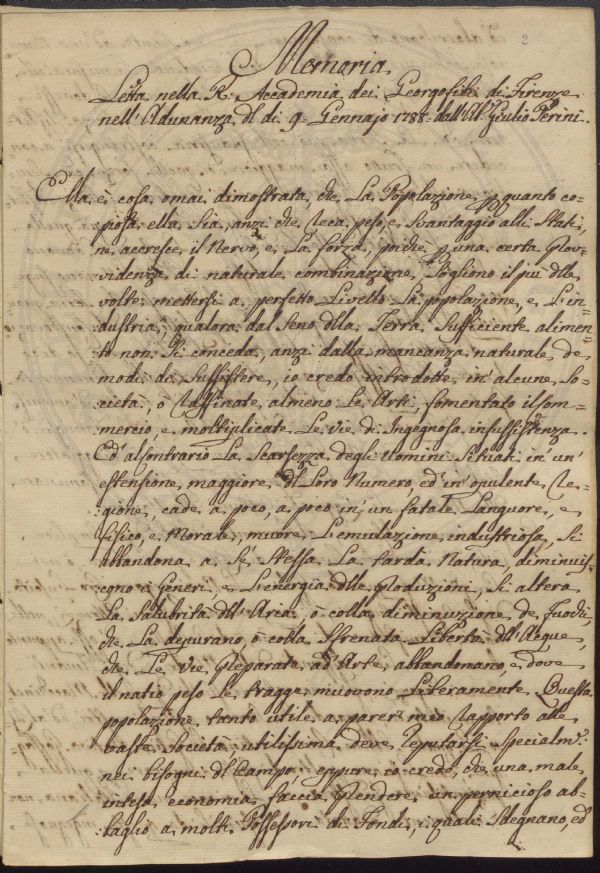 2
Memoria
Letta nella R. Accademia dei Georgofili di Firenze
nell'Adunanza dl dì 9. Gennajo 1788. dall'Ab. Giulio Perini.
Ella è cosa omai dimostrata, che La Popolazione p quanto co-
piosa ella sia, anzi che reca peso, e svantaggio alli Stati,
ne accresce il Nervo, e La forza, poichè p una certa Prov-
videnza di naturale combinazione, sogliono il più dlle
volte mettersi a perfetto Livello La popolazione, e L'in-
dustria; qualora dal seno dlla Terra sufficiente alimen-
to non si conceda, anzi dalla mancanza naturale de
modi da sussistere, io credo introdotte in alcune so-
cietà, ò raffinate almeno Le Arti, fomentato il Com-
mercio, e moltiplicate Le vie di Ingegnosa insussistenza.
Ed al contrario La Scarsezza degli Uomini Situati in un'
estensione maggiore dl Loro Numero, ed in opulente Re-
gione, cade a poco, a poco in un fatale Languore, e
fisico, e Morale, muore L'emulazione industriosa, si
abbandona a sè Stessa La tarda Natura, diminuis-
cono i Generi, e L'energia dlle Produzioni, si altera
La Salubrità dll'Area ò colla diminuzione de fuochi,
che La depurano, ò colla sfrenata Libertà dll'Acque,
che Le vie preparate ad Arte abbandonano, e dove
il natio peso Le tragge muovono Liberamente. Questa
popolazione tanto utile a parer mio rapporto alle
vaste Società, utilissima deve reputarsi specialm.e
nei bisogni dl Campo, eppure io credo, che una male
intesa economia faccia prendere un pernicioso ab-
baglio a molti Possessori di Fondi, i quali sdegnano, ed